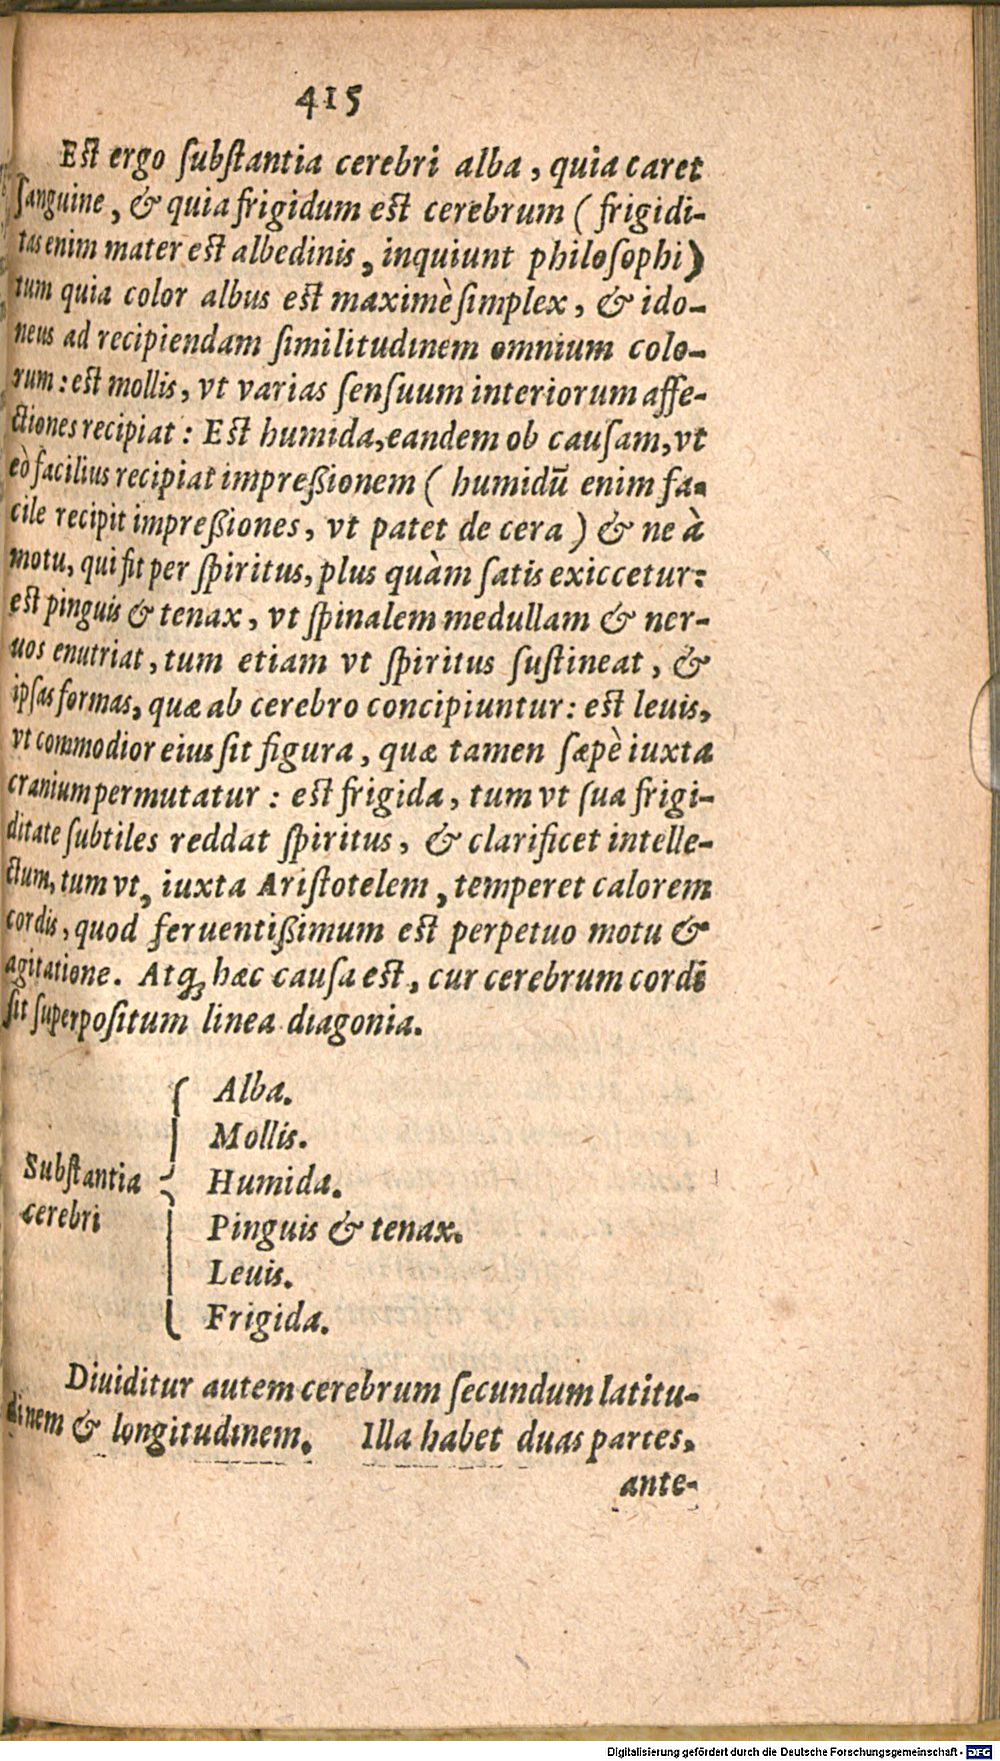 415
Est ergo ſubſtantia cerebri alba, quia caret
ſanguine, & quia frigidum est cerebrum (frigidi-
tas enim mater est albedinis, inquiunt philoſophi)
tum quia color albus est maximè ſimplex, & ido-
neus ad recipiendam ſimilitudinem omnium colo-
rum: est mollis, vt varias ſenſuum interiorum affe-
ctiones recipiat: Est humida, eandem ob cauſam, vt
eò facilius recipiat impreßionem (humidū enim fa-
cile recipit impreßiones, vt patet de cera) & ne à
motu, qui fit per ſpiritus, plus quàm ſatis exiccetur:
est pinguis & tenax, vt ſpinalem medullam & ner-
uos enutriat, tum etiam vt ſpiritus ſuſtineat, &
ipſas formas, quæ ab cerebro concipiuntur: est leuis,
vt commodior eius ſit figura, quæ tamen ſæpè iuxta
cranium permutatur: est frigida, tum vt ſua frigi-
ditate ſubtiles reddat ſpiritus, & clarificet intelle-
ctum, tum vt, iuxta Ariſtotelem, temperet calorem
cordis, quod feruentißimum est perpetuo motu &
agitatione. Atq; hæc cauſa est, cur cerebrum cordi
ſit ſuperpoſitum linea diagonia.
Alba.
Mollis.
Subſtantia
cerebri
Humida.
Pinguis & tenax.
Leuis.
Frigida.
Diuiditur autem cerebrum ſecundum latitu-
dinem & longitudinem. Illa habet duas partes,
ante-
Digitalisierung gefördert durch die Deutsche Forschungsgemeinschaft - DFG